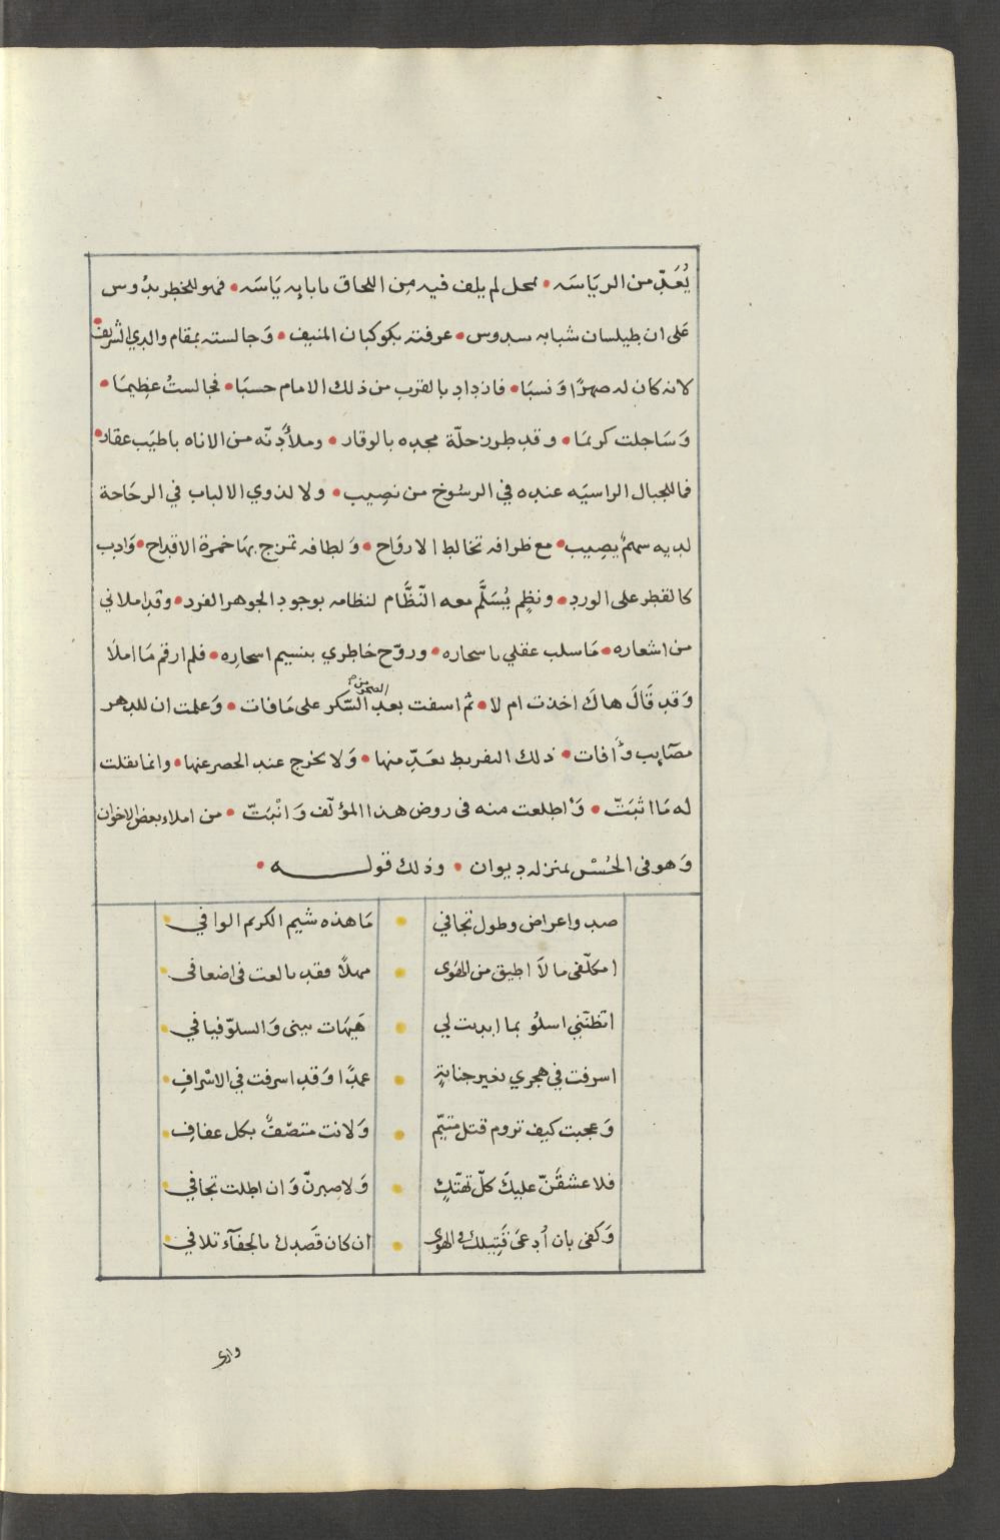 يُعَدّ من الريَاسَه • بمحل لم يلف فيه مِن اللحاق بابابه يَاسَه • فهو للخطر بدُوس
عَلى ان طيلسان شبابه سدوس • عرفته بكوكبان المنيف • وَجالسته بمقام والدي الشريف •
لانه كان له صهرًا وَنسبَا • فازداد بالقرب من ذلك الامام حسبَا • فجالستُ عظِيمَا •
وَسَاجلت كريمَا • وقد طرز حلّة مجده بالوقار • وملأ دنّه من الاناه باطيَب عقار •
فما للجبال الراسيَه عنده في الرسُوخ من نصِيب • ولا لذوي الالباب في الرجَاحة
لديه سهمٌ يصِيب • مع ظرافه تخالط الاروَاح • وَلطافه تمزج بهَا خمرة الاقداح • وَادب
كالقطر على الورد • ونظِم يُسَلَّم معه النّظَّام لنظامه بوجود الجوهر الفرد • وقد املاني
من اشعاره • مَا سلب عقلي باسحاره • وروّح خاطري بنسيم اسحاره • فلم ارقم مَا املا
وَقد قَالَ هاكَ اخذت ام لا • ثم اسفت بعد السّكر على مَافات • وَعلمت ان للدهر
مصَايب وَأفات • ذلك التفريط تعَدّ منها • وَلا يخرج عند الحصر عنها • وانما نقلت
له مَا اثبَتّ • وَاطلعت منه فى روض هذا المؤلّف وَانْبَتّ • من املاء بعض الاخوان
وَهو فى الحُسْن بمنزله ديوان • وذلك قوله •
صد واعراض وطول تجافي • مَا هذه شيم الكريم الوافي •
امكلّفى ما لاَ اطيق من الهَوى • مهلاً فقد بالغت فى اضعافى •
اتظنّني اسلُو بما ابديت لي • هَيهَات بينى وَالسلوّ فيافي •
اسرفت في هجري بغير جنايةٍ • عمدًا وَقد اسرفت في الاسْرافِ •
وَعجبت كيف تروم قتل متيّم • وَلانت متصّفٌ بكل عفافِ •
فلاعشقَنّ عليكَ كلّ تهتّكٍ • وَلاصبرنّ وَان اطلت تجافي •
وَكفى بان اُدعَى قَتِيلك فى الهوى • ان كان قَصدك بالجفَآء تلافي •